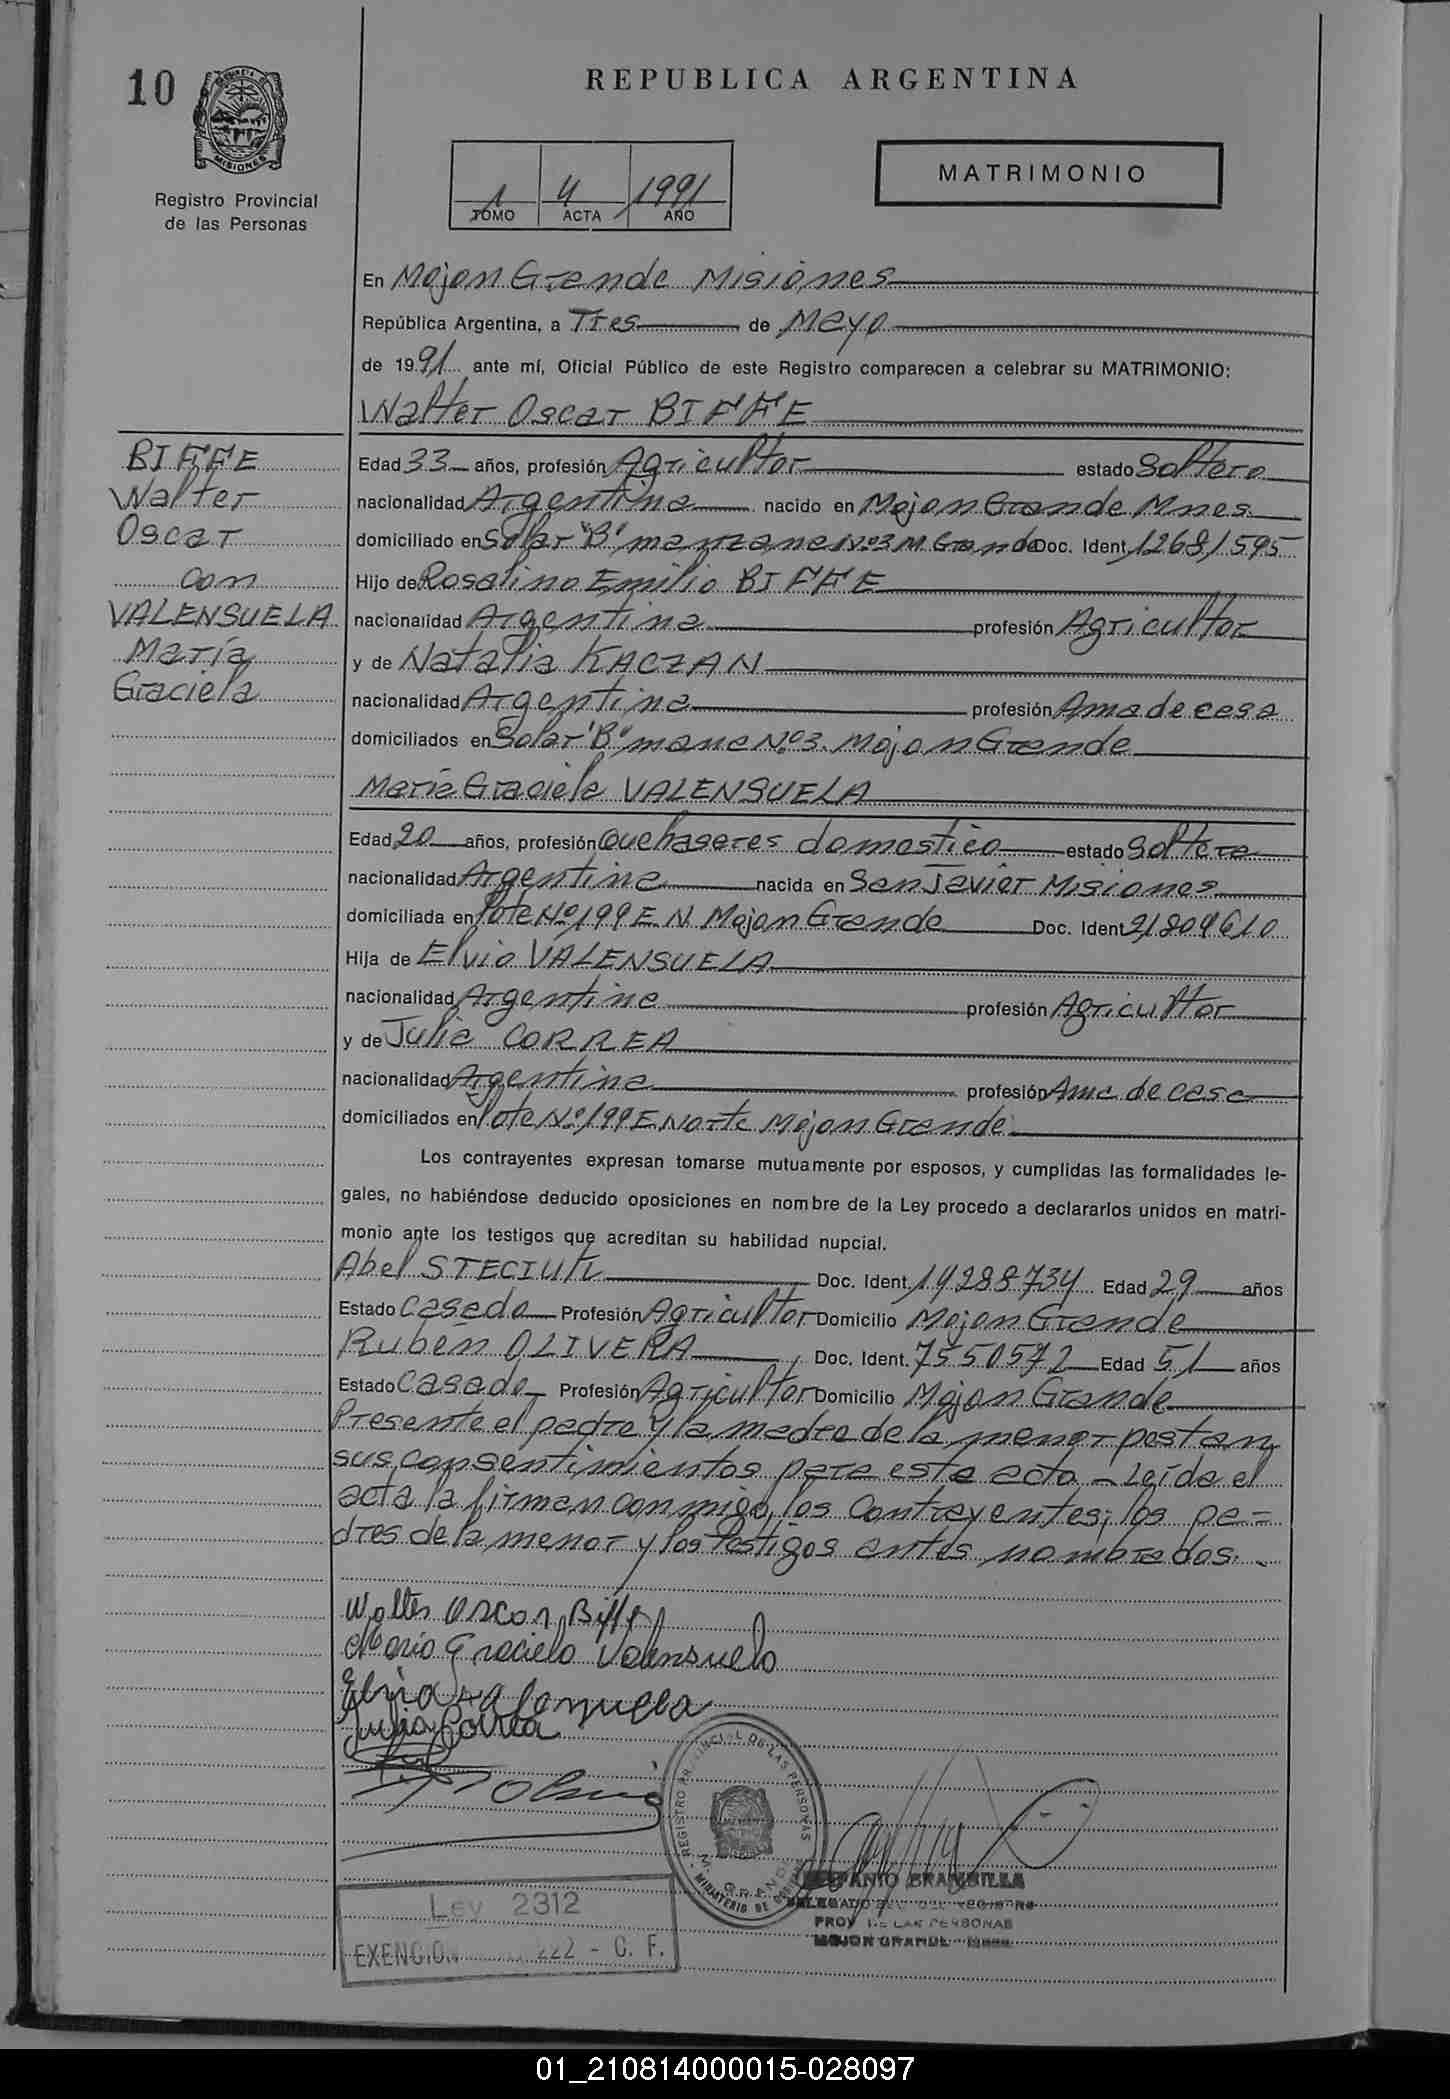 10
MISIONES
Registro Provincial
de las Personas
REPUBLICA ARGENTINA
1 4 1991
TOMO ACTA AÑO
MATRIMONIO
En Mojon Grande Misiones
República Argentina, a Tres de Mayo
de 1991 ante mí, Oficial Público de este Registro comparecen a celebrar su MATRIMONIO:
Walter Oscar BIFFE
BIFFE
Walter
Oscar
con
VALENSUELA
María
Graciela
Edad 33 años, profesión Agricultor estado Soltero
nacionalidad Argentina nacido en Mojon Grande Mnes
domiciliado en Solar "B" manzana Nº3 M Grande Doc. Ident. 12681595
Hijo de Rosalino Emilio BIFFE
nacionalidad Argentina profesión Agricultor
y de Natalia KACZAN
nacionalidad Argentina profesión Ama de casa
domiciliados en Solar "B" mana Nº3. Mojon Grande
María Graciela VALENSUELA
Edad 20 años, profesión Quehaseres domestico estado Soltera
nacionalidad Argentina nacida en San Javier Misiones
domiciliada en lote Nº 199 E N Mojon Grande Doc. Ident 21809610
Hija de Elvio VALENSUELA
nacionalidad Argentina profesión Agricultor
y de Julia CORREA
nacionalidad Argentina profesión Ama de casa
domiciliados en lote Nº 199 E Norte Mojon Grande
Los contrayentes expresan tomarse mutuamente por esposos, y cumplidas las formalidades le-
gales, no habiéndose deducido oposiciones en nombre de la Ley procedo a declararlos unidos en matri-
monio ante los testigos que acreditan su habilidad nupcial.
Abel STECIUK Doc. Ident. 14288734 Edad 29 años
Estado Casado Profesión Agricultor Domicilio Mojon Grande
Rubén OLIVERA, Doc. Ident. 7550572 Edad 51 años
Estado Casado Profesión Agricultor Domicilio Mojon Grande
Presente el padre y la madre de la menor postan
sus consentimientos para este acto - Leída el
acta la firman conmigo, los contrayentes; los pa=
dres de la menor y los testigos antes nombrados. -
Walter Oscar Biffe
Maria Graciela Valensuela
Elvio Valensuela
Julia Correa
REGISTRO PROVINCIAL DE LAS PERSONAS
M. GRANDE
MINISTERIO DE
BRAMBILLA
DELEGADO DEL REGISTRO
PROV DE LAS PERSONAS
MOJON GRANDE
Ley 2312
EXENCION 222 - C. F.
01_210814000015-028097